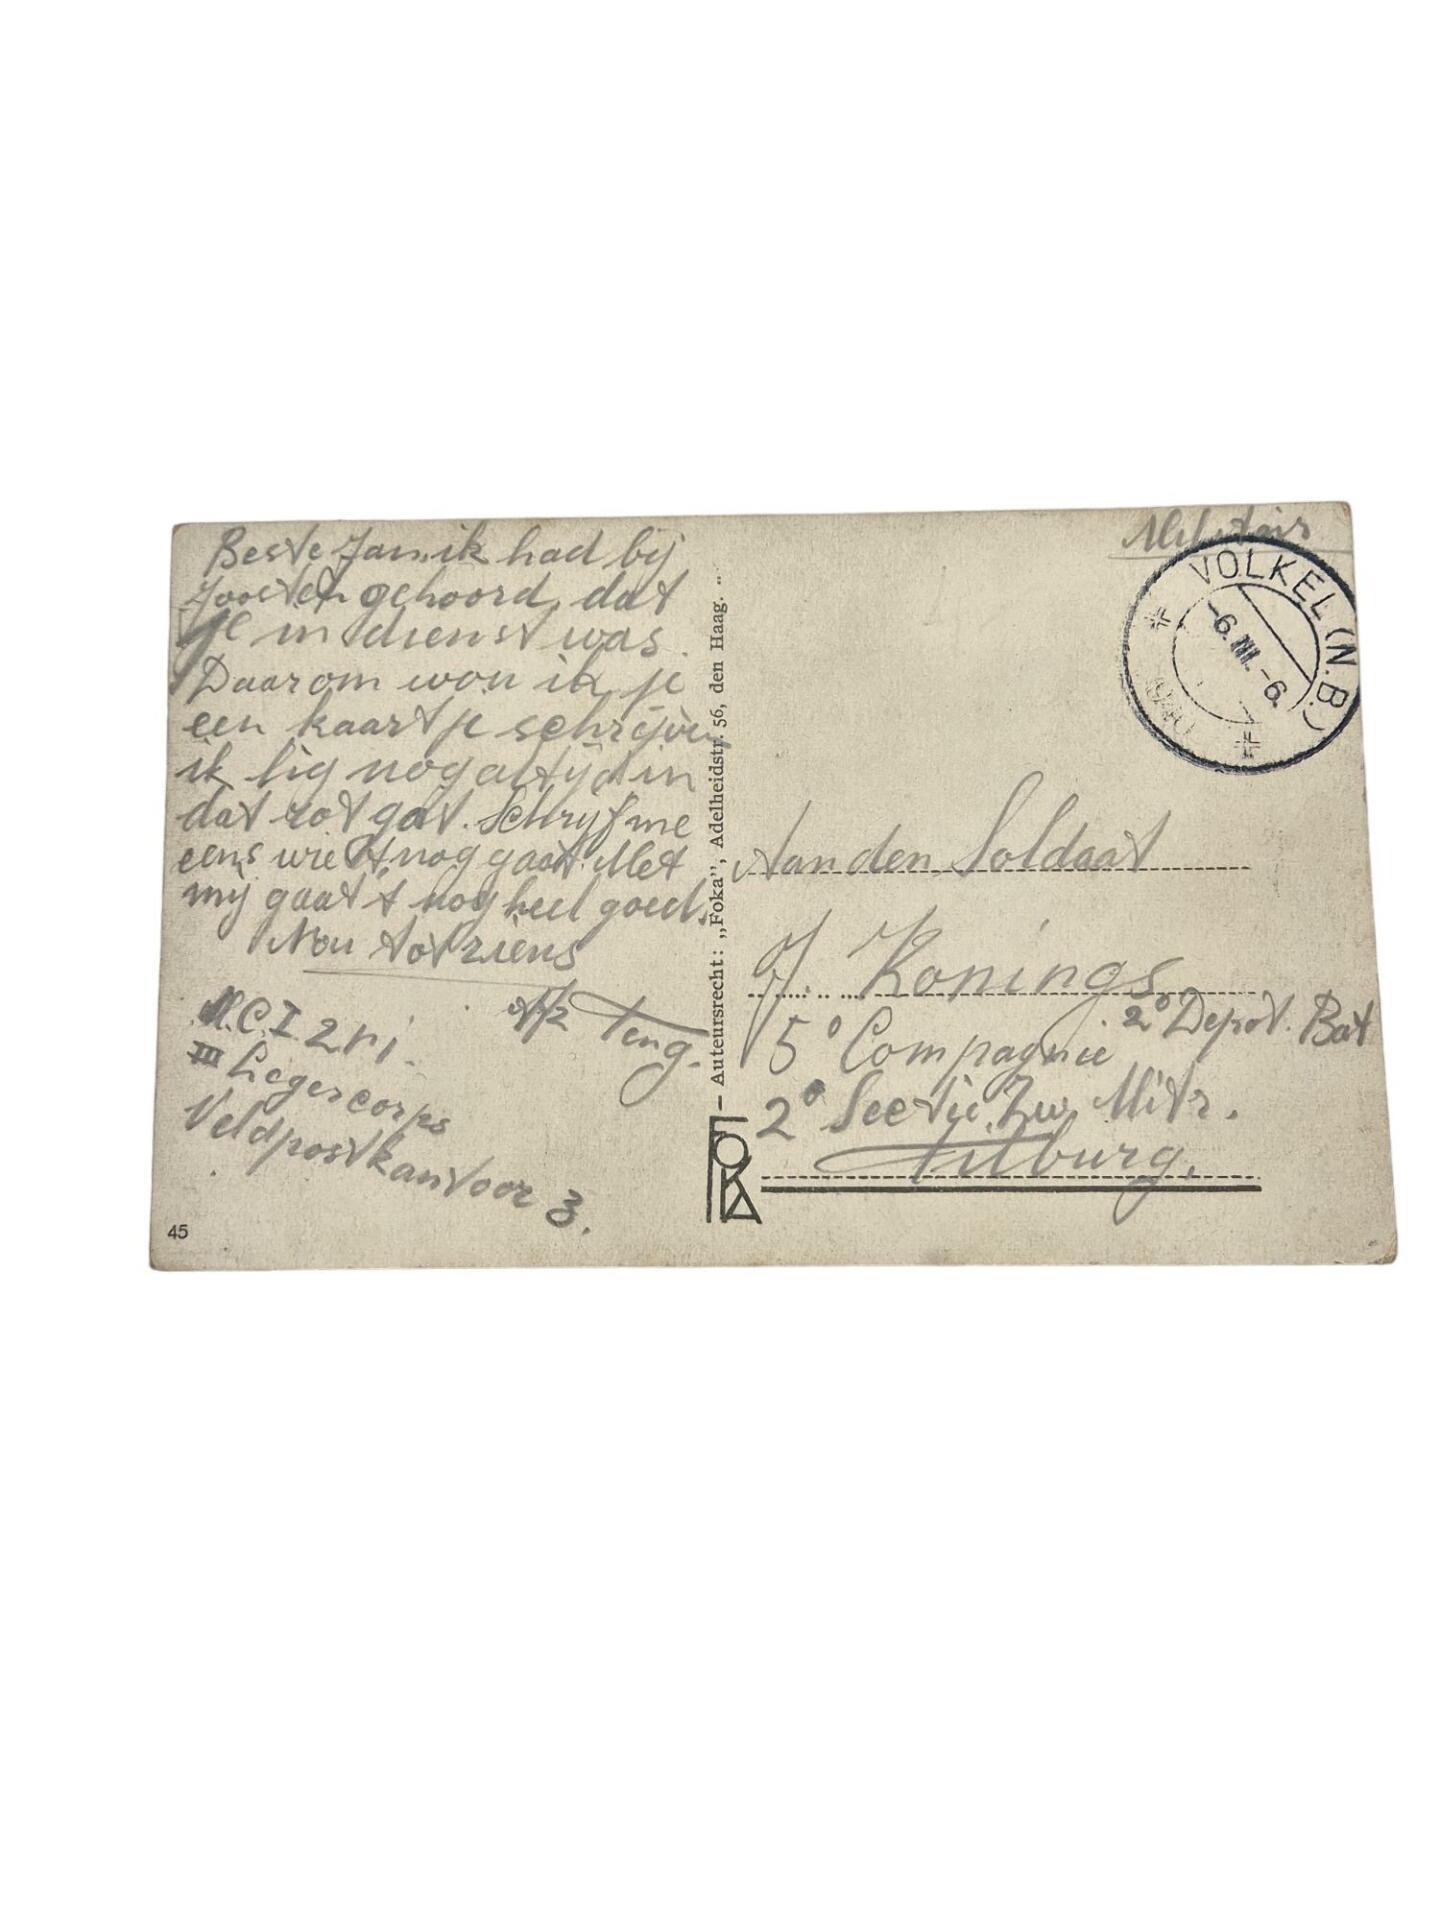 Beste Jan. ik had bij
gehoord, dat
je in dienst was.
Daarom wou ik je
een kaartje schrijven
ik lig nog altijd in
dat rotgat. Schrijf me
eens wie 't nog gaat. Met
mij gaat 't nog heel goed.
Nou tot ziens
M.C.I 2 r i.
III Legercorps
Veldpostkantoor 3.
45
— Auteursrecht: „Foka”, Adelheidstr. 56, den Haag. —
FOKA
Militair
VOLKEL (N.B.)
-6.III.-6.
1940
Aan den Soldaat
J. Konings
5e Compagnie 2e Depot. Bat
2e Sectie Zw. Mitr.
Tilburg.